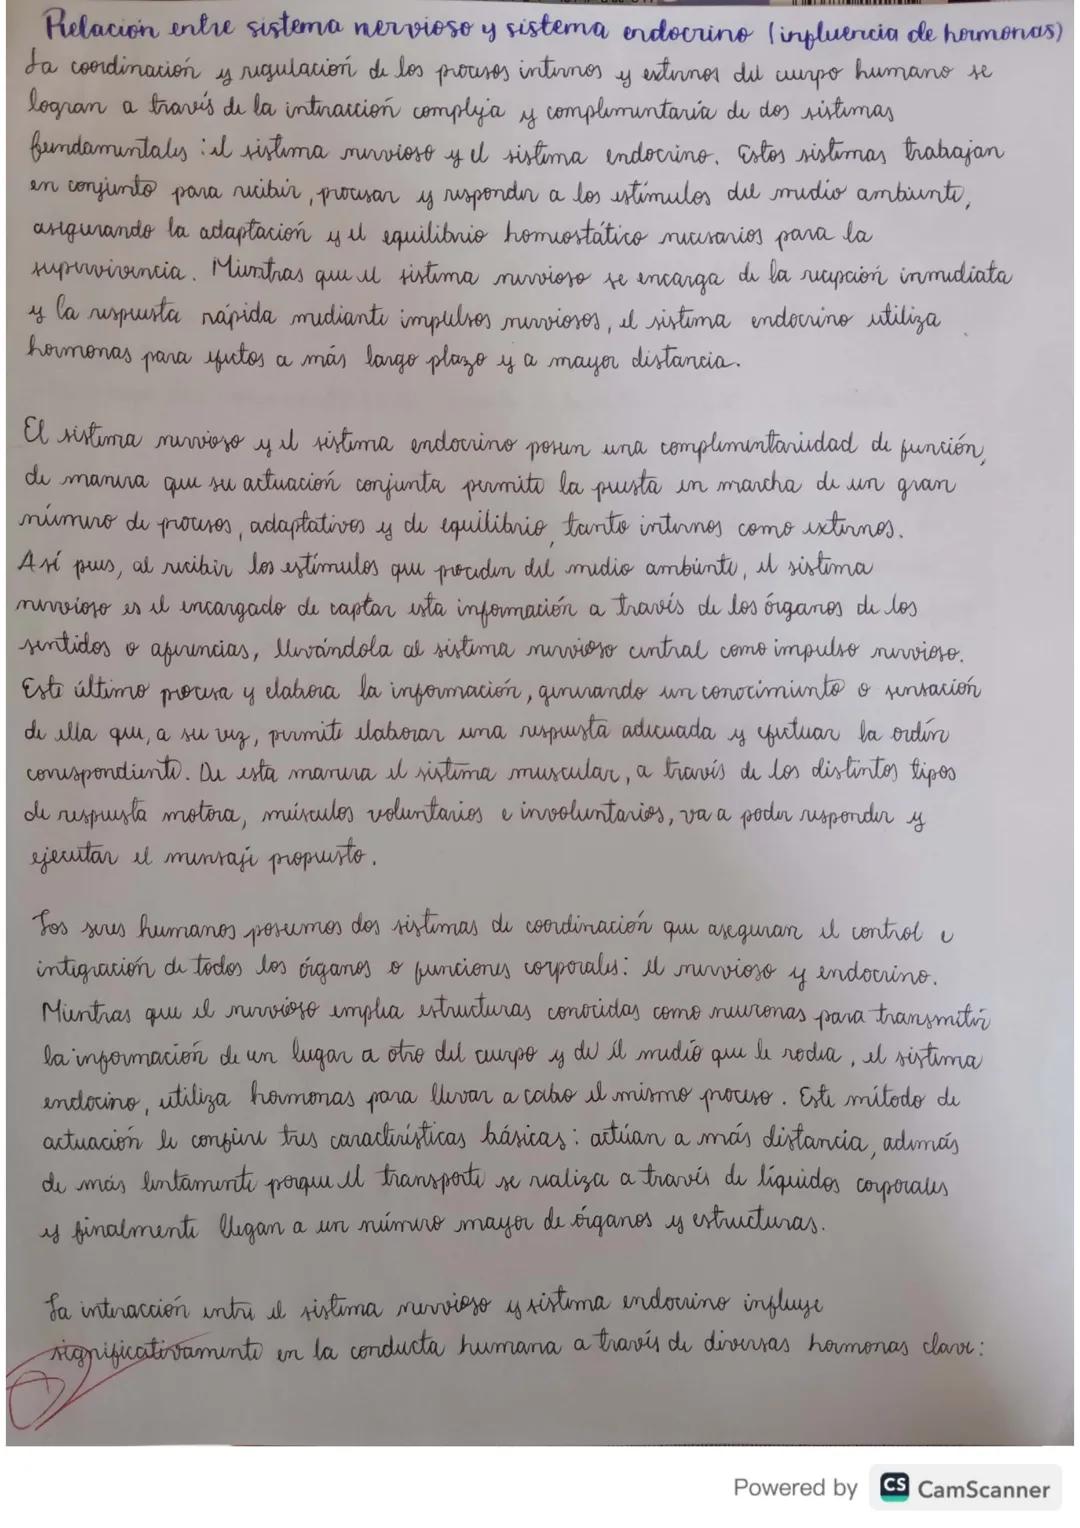 Relación entre sistema nervioso y sistema endocrino (influencia de hormonas)
La coordinación y regulación de los procesos internos y externos del cuerpo humano se
logran a través de la interacción compleja y complementaria de dos sistemas
fundamentales: el sistema nervioso y el sistema endocrino. Estos sistemas trabajan
en conjunto para recibir, procesar y responder a los estímulos del medio ambiente,
asegurando la adaptación y el equilibrio homeostático necesarios para la
supervivencia. Mientras que el sistema nervioso se encarga de la recepción inmediata
y la respuesta rápida mediante impulsos nerviosos, el sistema endocrino utiliza
hormonas para efectos a más largo plazo y a mayor distancia.
El sistema nervioso y el sistema endocrino poseen una complementariedad de función,
de manera que su actuación conjunta permite la puesta en marcha de un gran
número de procesos, adaptativos y de equilibrio, tanto internos como externos.
Así pues, al recibir los estímulos que proceden del medio ambiente, el sistema
nervioso es el encargado de captar esta información a través de los órganos de los
sentidos o aferencias, llevándola al sistema nervioso central como impulso nervioso.
Este último procesa y elabora la información, generando un conocimiento o sensación
de ella que, a su vez, permite elaborar una respuesta adecuada y efectuar la orden
correspondiente. De esta manera el sistema muscular, a través de los distintos tipos
de respuesta motora, músculos voluntarios e involuntarios, va a poder responder y
ejecutar el mensaje propuesto.
Los seres humanos poseemos dos sistemas de coordinación que aseguran el control e
integración de todos los órganos o funciones corporales: el nervioso y endocrino.
Mientras que el nervioso emplea estructuras conocidas como neuronas para transmitir
la información de un lugar a otro del cuerpo y de él medio que le rodea, el sistema
endocino, utiliza hormonas para llevar a cabo el mismo proceso. Este método de
actuación le confiere tres características básicas: actúan a más distancia, además
de más lentamente porque el transporte se realiza a través de líquidos corporales
y finalmente llegan a un número mayor de órganos y estructuras.
La interacción entre el sistema nervioso y sistema endocrino influye
significativamente en la conducta humana a través de diversas hormonas clave:
Powered by CS CamScanner